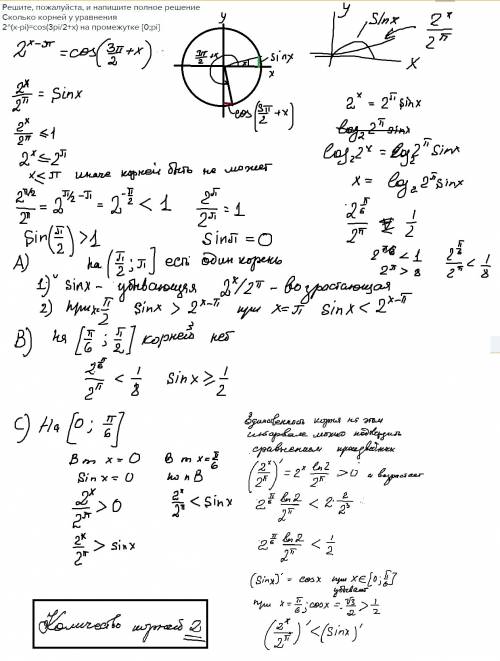 Решите, пожалуйста, и напишите полное решение
Сколько корней у уравнения
2^(x-pi)=cos(3pi/2+x) на промежутке [0;pi]
2^(x-π) = cos(3π/2 + x)
y
3π/2+x
x
sinx
x
cos(3π/2+x)
y
sinx
2^x/2^π
x
2^x/2^π = sinx
2^x/2^π ≤ 1
2^x ≤ 2^π
x ≤ π иначе корней быть не может
2^(π/2)/2^π = 2^(π/2-π) = 2^(-π/2) < 1
2^π/2^π = 1
Sin(π/2) > 1
Sinπ = 0
2^x = 2^π sinx
log₂ 2^π sinx
log₂ 2^x = log₂ 2^π sinx
x = log₂ 2^π sinx
2^(π/6)/2^π 1/2
2^(π/6) < 1
2^π > 8
2^(π/6)/2^π < 1/8
A) на [π/2; π] есть один корень
1) sinx - убывающая 2^x/2^π - возрастающая
2) при x=π/2 sinx > 2^(x-π) при x=π sinx < 2^(x-π)
B) на [π/6; π/2] корней нет
2^(π/6)/2^π < 1/8 sinx ≥ 1/2
C) На [0; π/6]
В т x = 0
Sinx = 0
2^x/2^π > 0
2^x/2^π > sinx
В т x = π/6
по п B
2^x/2^π < Sinx
Единственность корня на этом
интервале можно подтвердить
сравнением производных
(2^x/2^π)' = 2^x ln2/2^π > 0 и возрастает
2^(π/6) ln2/2^π < 2·2/2³
2^(π/6) ln2/2^π < 1/2
(Sinx)' = cosx при x∈[0; π/6]
убывает
при x = π/6; cosx = √3/2 > 1/2
(2^x/2^π)' < (sinx)'
Количество корней 2